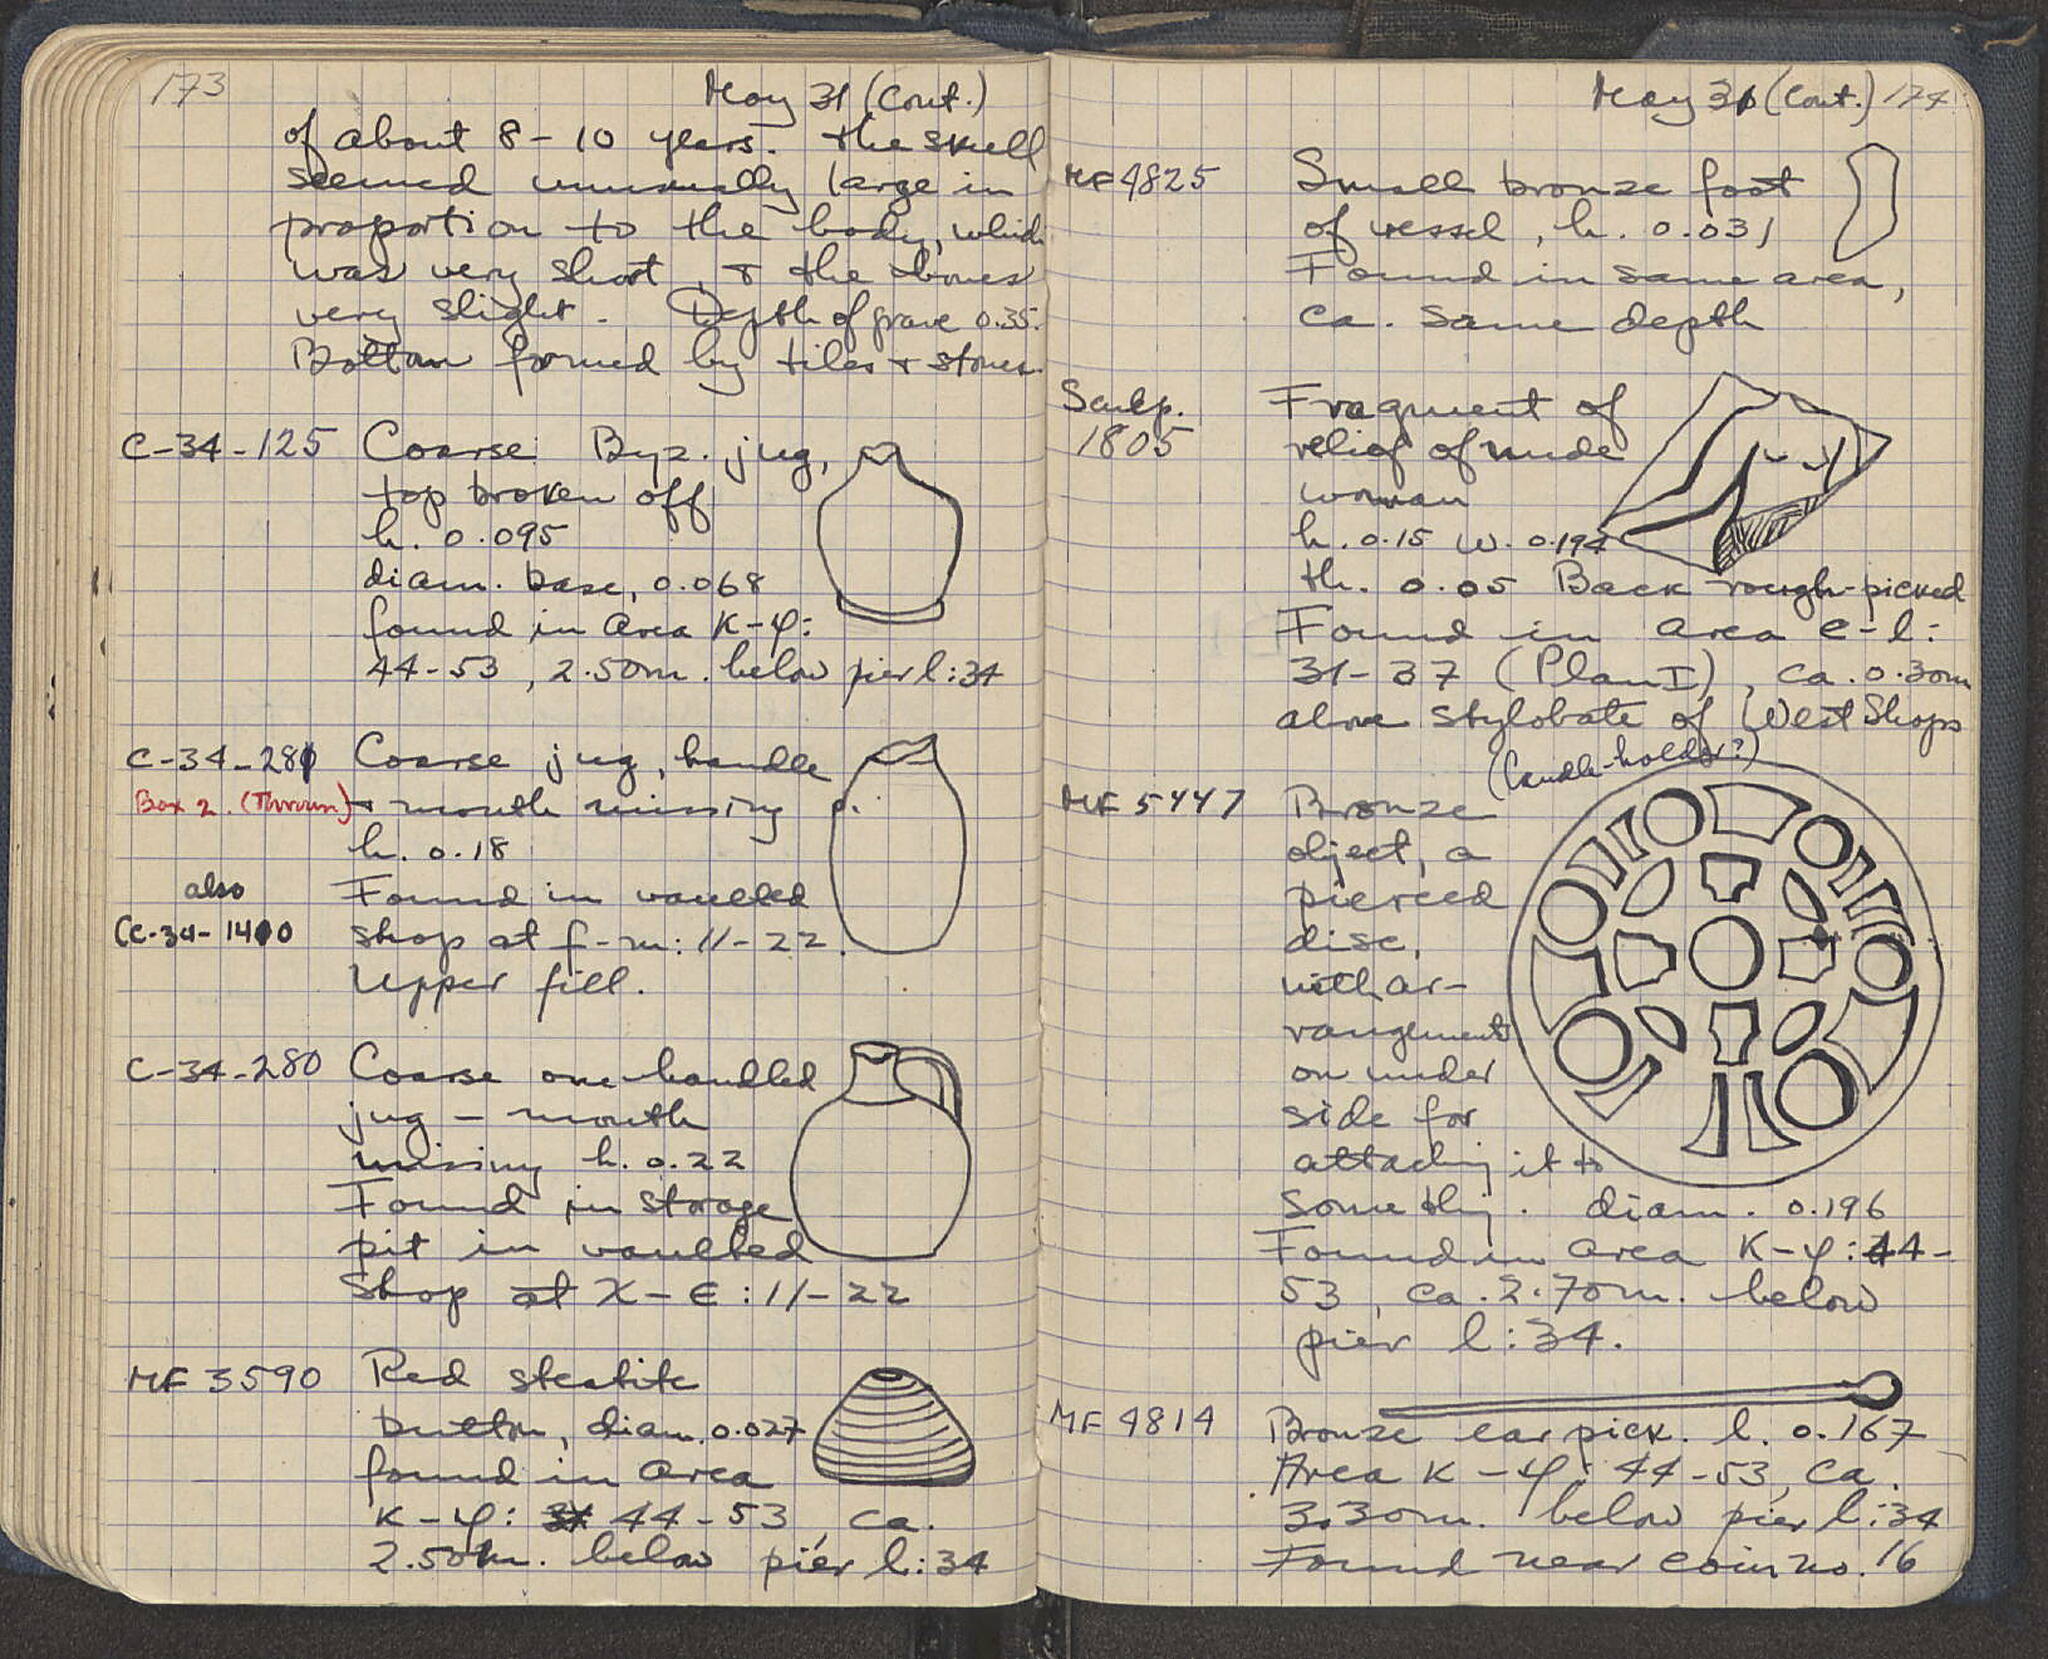 173
May 31 (Cont.)
of about 8-10 years. The skull
seemed unusually large in
proportion to the body, which
was very short, & the bones
very slight. Depth of grave 0.35.
Bottom formed by tiles & stones.
C-34-125 Coarse Byz. jug,
top broken off
h. 0.095
diam. base, 0.068
found in Area K-φ:
44-53, 2.50m. below pier l:34
C-34-281 Coarse jug, handle
Box 2. (Thrown) & mouth missing
h. 0.18
also Found in vaulted
CC-34-1400 shop at f-m: 11-22.
Upper fill.
C-34-280 Coarse one-handled
jug - mouth
missing h. 0.22
Found in storage
pit in vaulted
shop at X-E: 11-22
MF 3590 Red steatite
button, diam. 0.027
found in Area
K-φ: 44-53, ca.
2.50m. below pier l:34
May 31 (Cont.) 174
MF 4825 Small bronze foot
of vessel, h. 0.031
Found in same area,
ca. same depth
Sculp. Fragment of
1805 relief of nude
woman
h. 0.15 w. 0.194
th. 0.05 Back rough-picked
Found in area e-l:
31-37 (Plan I), ca. 0.30m
above stylobate of West Shops
(Candle-holder?)
MF 5447 Bronze
object, a
pierced
disc,
with ar-
rangement
on under
side for
attaching it to
something. diam. 0.196
Found in area K-φ: 44-
53, ca. 2.70m. below
pier l:34.
MF 4814 Bronze ear pick. l. 0.167
Area K-φ: 44-53, ca.
3.30m. below pier l:34
Found near coin no. 16